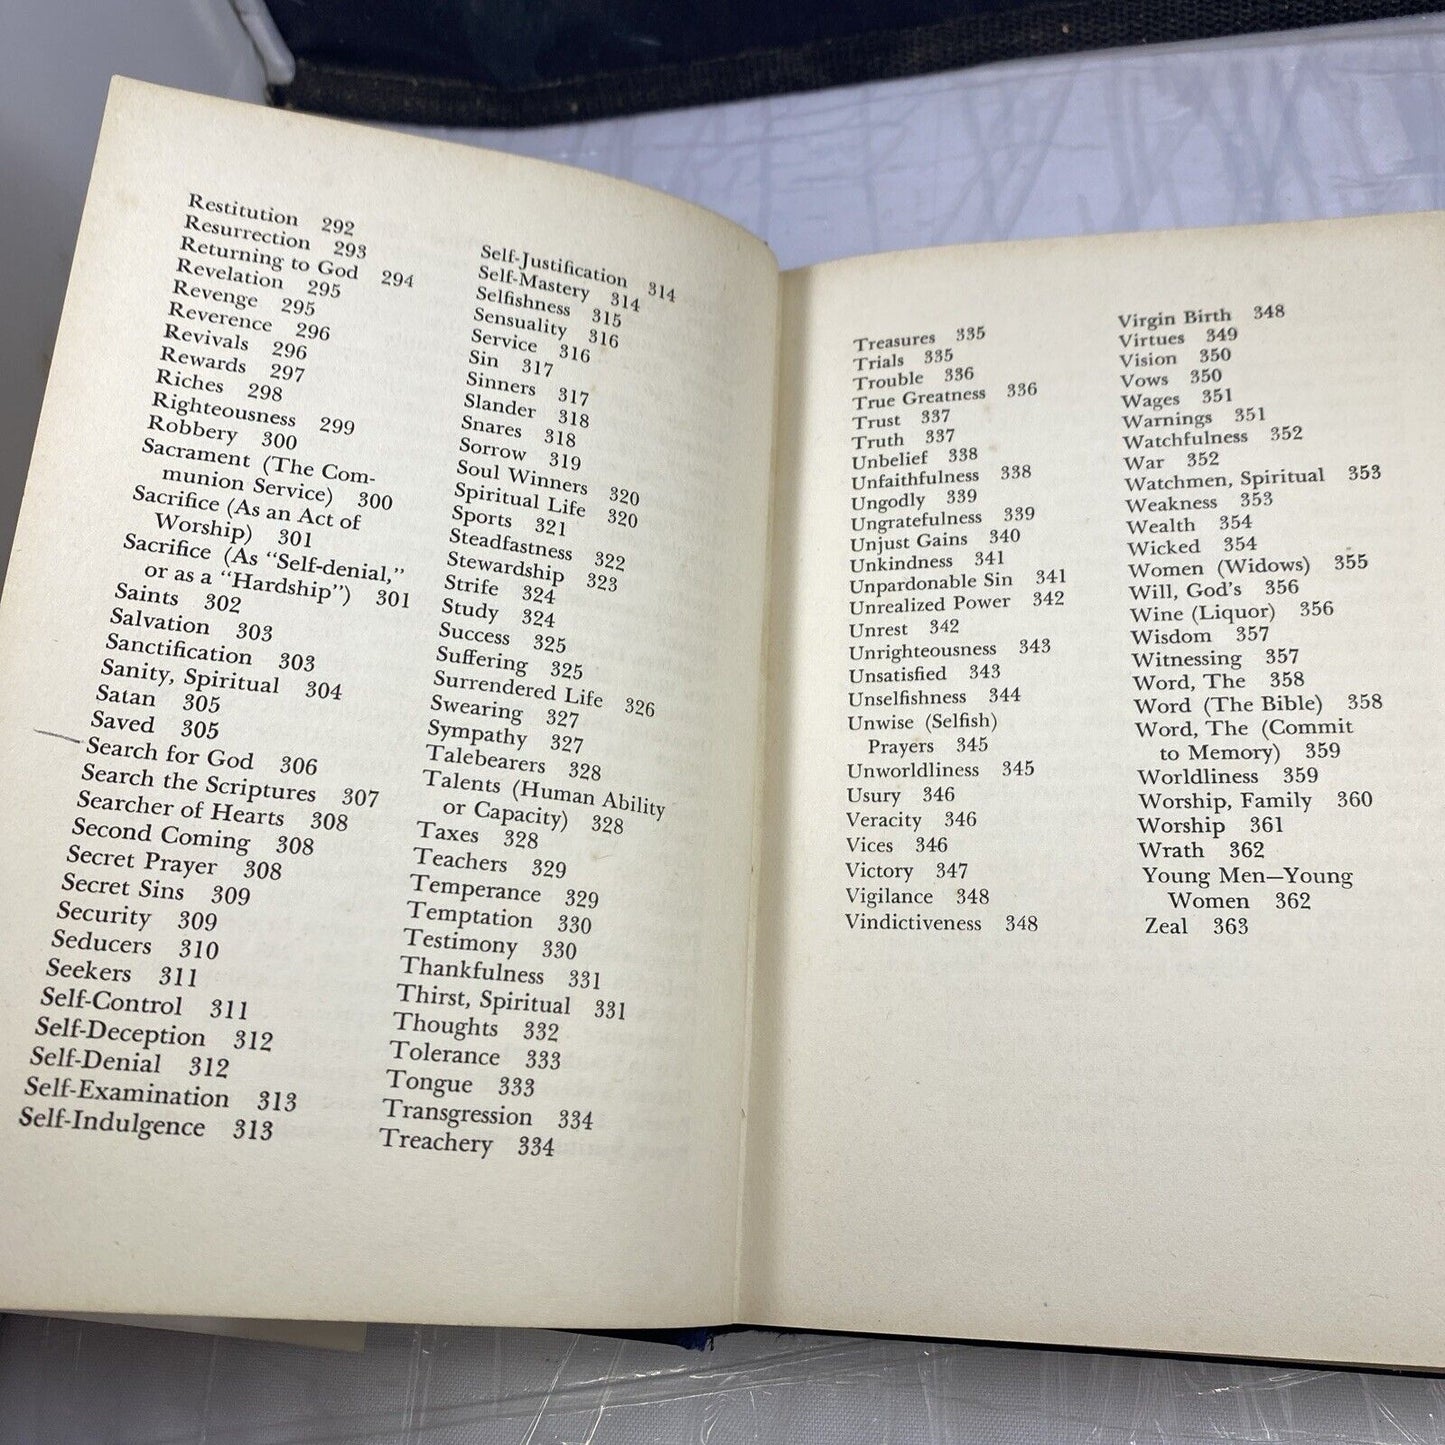 Restitution 292
Resurrection 293
Returning to God 294
Revelation 295
Revenge 295
Reverence 296
Revivals 296
Rewards 297
Riches 298
Righteousness 299
Robbery 300
Sacrament (The Com-
munion Service) 300
Sacrifice (As an Act of
Worship) 301
Sacrifice (As "Self-denial,"
or as a "Hardship") 301
Saints 302
Salvation 303
Sanctification 303
Sanity, Spiritual 304
Satan 305
Saved 305
Search for God 306
Search the Scriptures 307
Searcher of Hearts 308
Second Coming 308
Secret Prayer 308
Secret Sins 309
Security 309
Seducers 310
Seekers 311
Self-Control 311
Self-Deception 312
Self-Denial 312
Self-Examination 313
Self-Indulgence 313
Self-Justification 314
Self-Mastery 314
Selfishness 315
Sensuality 316
Service 316
Sin 317
Sinners 317
Slander 318
Snares 318
Sorrow 319
Soul Winners 320
Spiritual Life 320
Sports 321
Steadfastness 322
Stewardship 323
Strife 324
Study 324
Success 325
Suffering 325
Surrendered Life 326
Swearing 327
Sympathy 327
Talebearers 328
Talents (Human Ability
or Capacity) 328
Taxes 328
Teachers 329
Temperance 329
Temptation 330
Testimony 330
Thankfulness 331
Thirst, Spiritual 331
Thoughts 332
Tolerance 333
Tongue 333
Transgression 334
Treachery 334
Treasures 335
Trials 335
Trouble 336
True Greatness 336
Trust 337
Truth 337
Unbelief 338
Unfaithfulness 338
Ungodly 339
Ungratefulness 339
Unjust Gains 340
Unkindness 341
Unpardonable Sin 341
Unrealized Power 342
Unrest 342
Unrighteousness 343
Unsatisfied 343
Unselfishness 344
Unwise (Selfish)
Prayers 345
Unworldliness 345
Usury 346
Veracity 346
Vices 346
Victory 347
Vigilance 348
Vindictiveness 348
Virgin Birth 348
Virtues 349
Vision 350
Vows 350
Wages 351
Warnings 351
Watchfulness 352
War 352
Watchmen, Spiritual 353
Weakness 353
Wealth 354
Wicked 354
Women (Widows) 355
Will, God's 356
Wine (Liquor) 356
Wisdom 357
Witnessing 357
Word, The 358
Word (The Bible) 358
Word, The (Commit
to Memory) 359
Worldliness 359
Worship, Family 360
Worship 361
Wrath 362
Young Men—Young
Women 362
Zeal 363